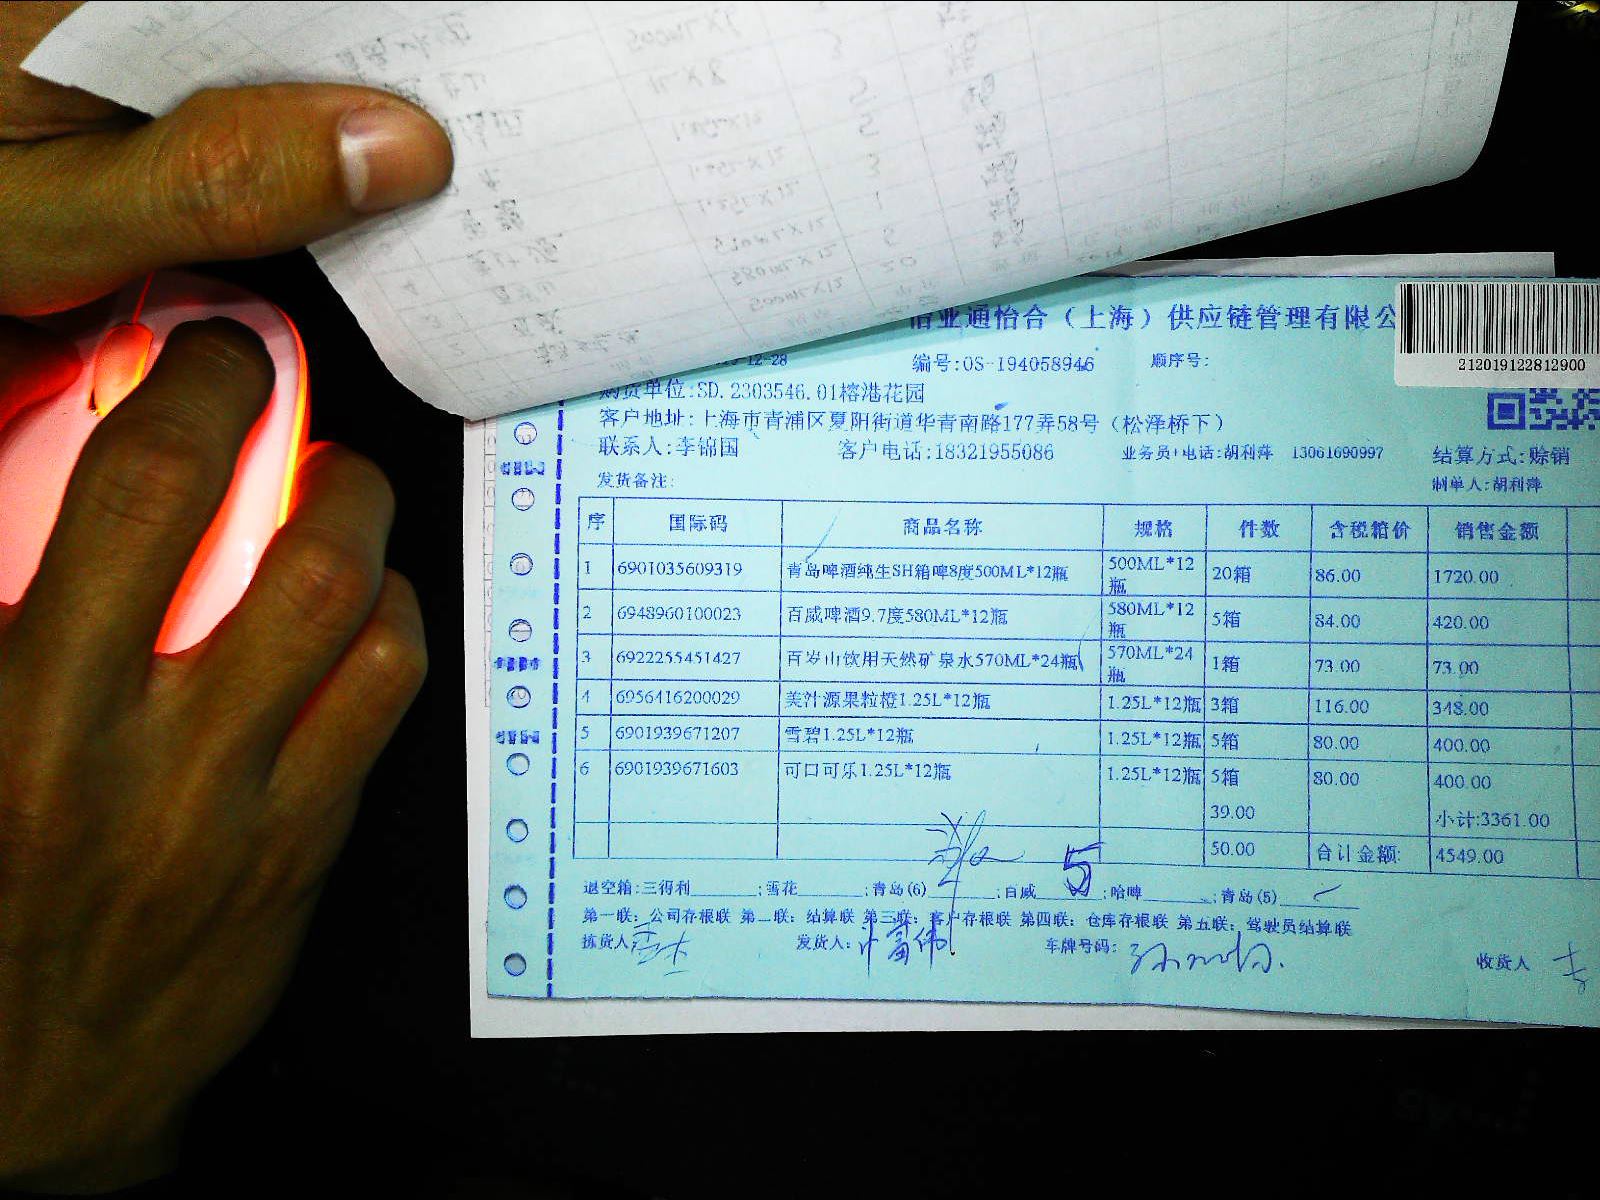 业通怡合（上海）供应链管理有限公
212019122812900
12-28 编号:OS-194058946 顺序号:
购货单位:SD.2303546.01榕港花园
客户地址:上海市青浦区夏阳街道华青南路177弄58号（松泽桥下）
联系人:李锦国 客户电话:18321955086 业务员+电话:胡利萍 13061690997 结算方式:赊销
发货备注: 制单人:胡利萍
序 国际码 商品名称 规格 件数 含税箱价 销售金额
1 6901035609319 青岛啤酒纯生SH箱啤8度500ML*12瓶 500ML*12瓶 20箱 86.00 1720.00
2 6948960100023 百威啤酒9.7度580ML*12瓶 580ML*12瓶 5箱 84.00 420.00
3 6922255451427 百岁山饮用天然矿泉水570ML*24瓶 570ML*24瓶 1箱 73.00 73.00
4 6956416200029 美汁源果粒橙1.25L*12瓶 1.25L*12瓶 3箱 116.00 348.00
5 6901939671207 雪碧1.25L*12瓶 1.25L*12瓶 5箱 80.00 400.00
6 6901939671603 可口可乐1.25L*12瓶 1.25L*12瓶 5箱 80.00 400.00
39.00 小计:3361.00
50.00 合计金额: 4549.00
退空箱:三得利 ;雪花 ;青岛(6) ;百威 5 ;哈啤 ;青岛(5)
第一联：公司存根联 第二联：结算联 第三联：客户存根联 第四联：仓库存根联 第五联：驾驶员结算联
拣货人: 发货人: 车牌号码: 收货人